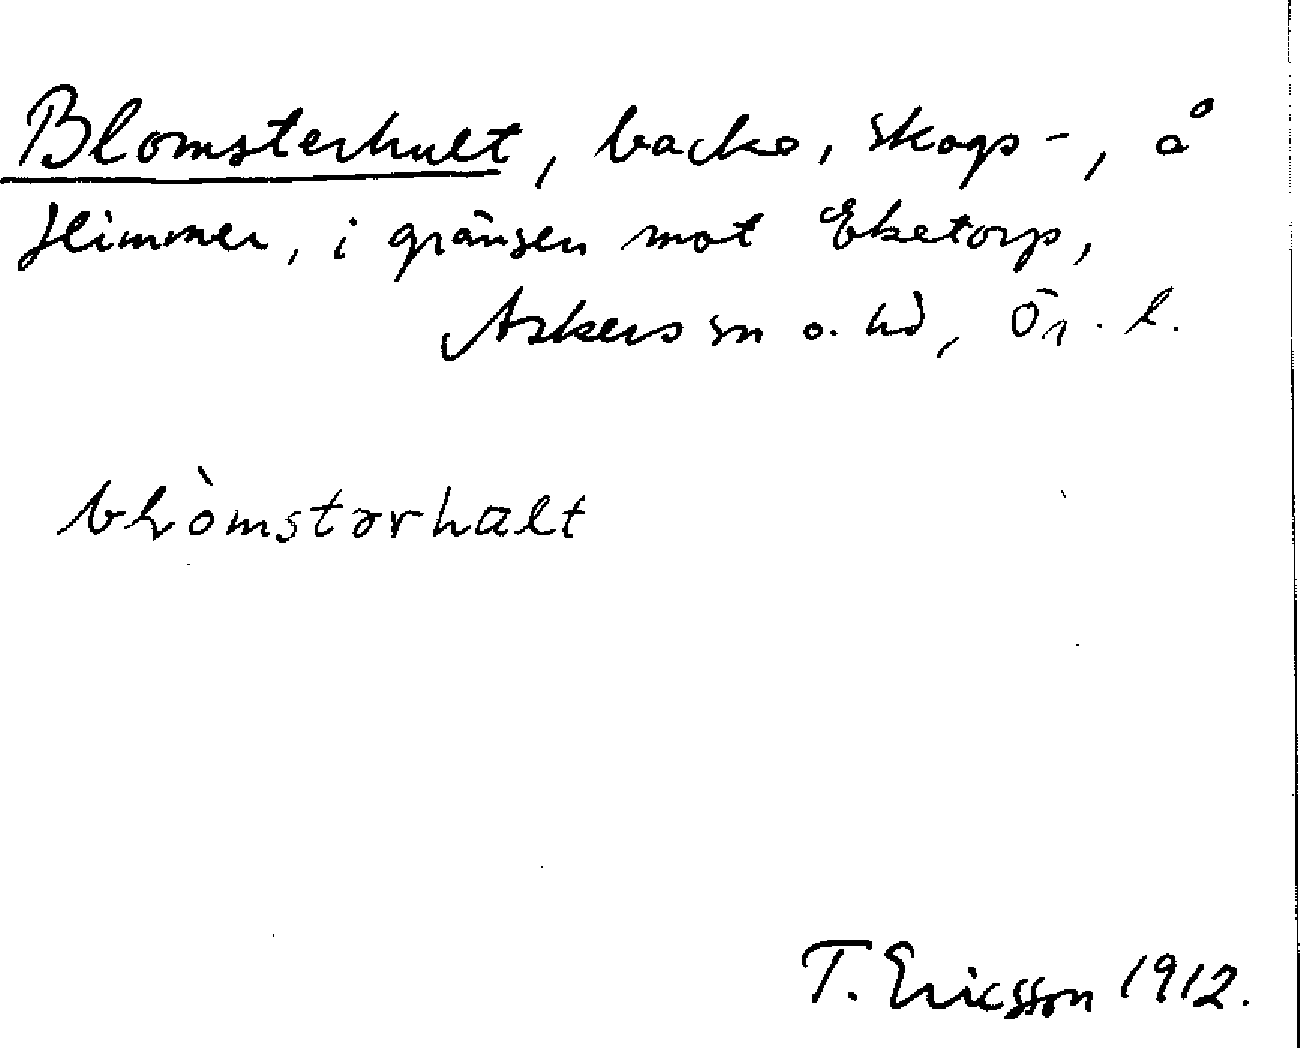 Blomsterhult, backe, skogs-, å
Flimmer, i gränsen mot Eketorp,
Askers sn o. hd, Ör. l.
blòmstərhalt
T. Ericsson 1912.